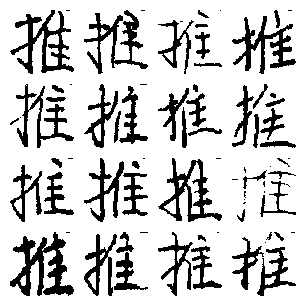 推推推推
推推推推
推推推推
推推推推